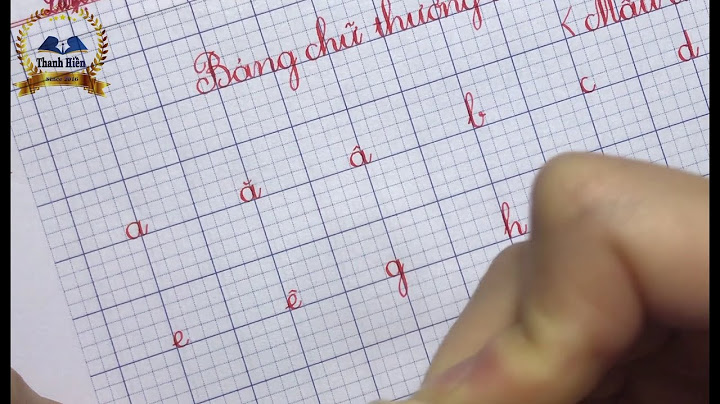 Thanh Hiền
Since 2016
Bảng chữ thường
a ă â b c d
e ê g h